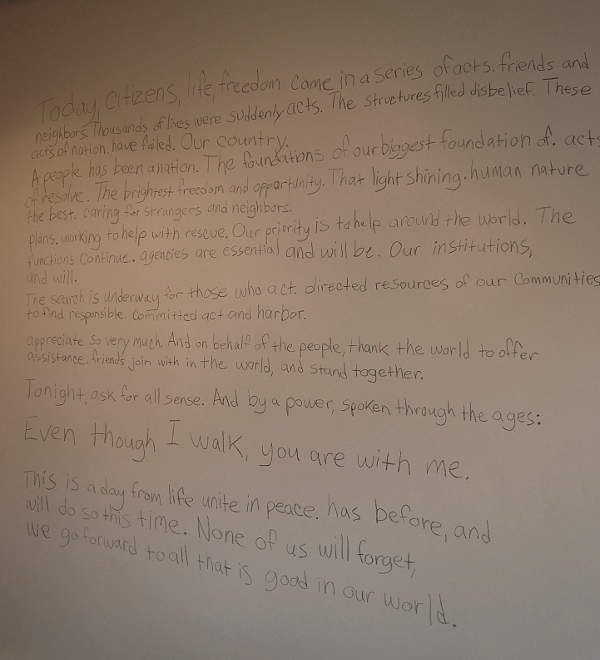 Today, citizens, life, freedom came in a series of acts. friends and
neighbors. Thousands of lives were suddenly acts. The structures filled disbelief. These
acts of nation. have failed. Our country.
A people has been a nation. The foundations of our biggest foundation of. acts
of resolve. The brightest freedom and opportunity. That light shining. human nature
the best. caring for strangers and neighbors.
plans. working to help with rescue. Our priority is to help around the world. The
functions continue. agencies are essential and will be. Our institutions,
and will.
The search is underway for those who act. directed resources of our communities
to find responsible. committed act and harbor.
appreciate so very much. And on behalf of the people, thank the world to offer
assistance. friends join with in the world, and stand together.
Tonight, ask for all sense. And by a power, spoken through the ages:
Even though I walk, you are with me.
This is a day from life unite in peace. has before, and
will do so this time. None of us will forget,
we go forward to all that is good in our world.